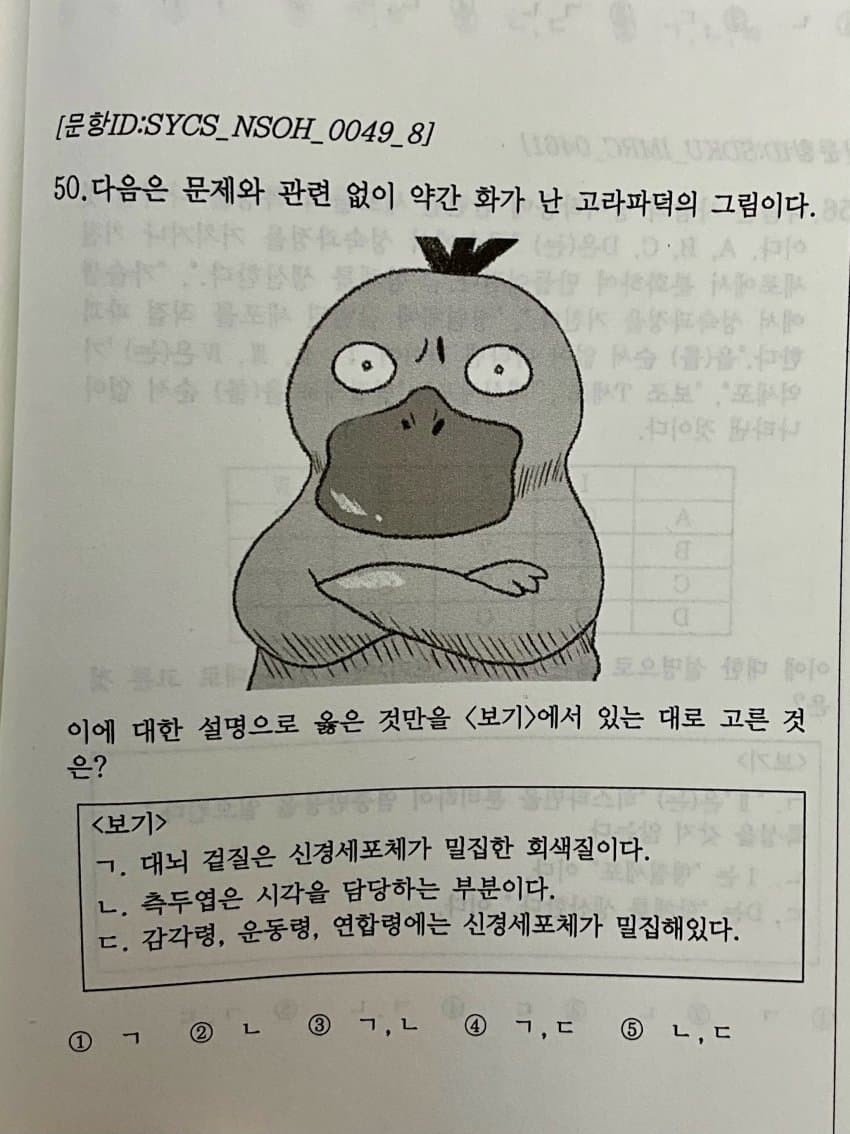 [문항ID:SYCS_NSOH_0049_8]
50.다음은 문제와 관련 없이 약간 화가 난 고라파덕의 그림이다.
이에 대한 설명으로 옳은 것만을 <보기>에서 있는 대로 고른 것
은?
<보기>
ㄱ. 대뇌 겉질은 신경세포체가 밀집한 회색질이다.
ㄴ. 측두엽은 시각을 담당하는 부분이다.
ㄷ. 감각령, 운동령, 연합령에는 신경세포체가 밀집해있다.
① ㄱ ② ㄴ ③ ㄱ,ㄴ ④ ㄱ,ㄷ ⑤ ㄴ,ㄷ